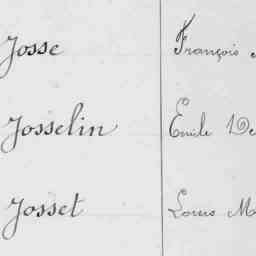 Josse François
Josselin Emile De
Josset Louis Ma